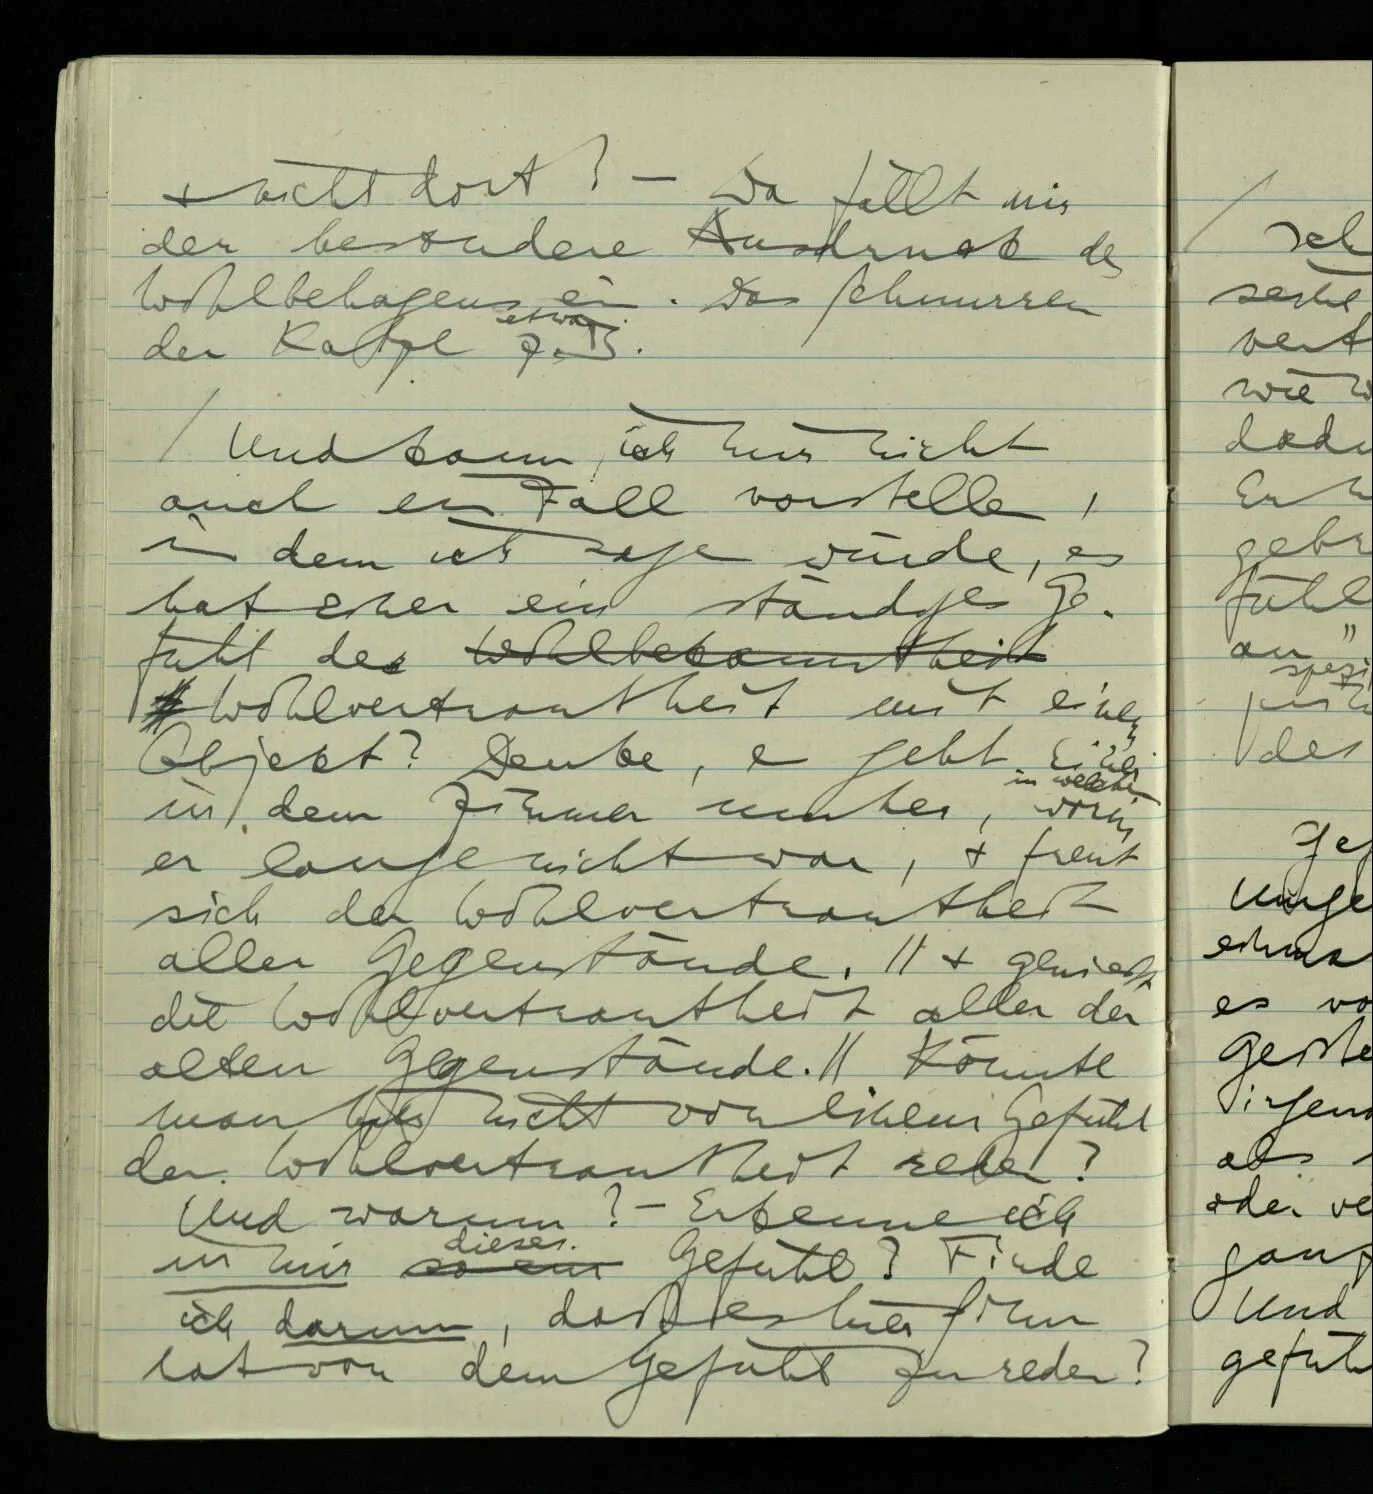 & nicht dort? – Da fällt mir
der besondere Ausdruck des
Wohlbehagens ein. Das Schnurren
der Katze etwa z.B.
/ Und kann ich mir nicht
auch ein Fall vorstellen,
in dem ich sagen würde, er
hat eher ein ständiges Ge-
fühl der Wohlbekanntheit
Wohlvertrautheit mit einem
Objekt? Denke, es geht Einer
in dem Zimmer umher, in welchem worin
er lange nicht war, & freut
sich der Wohlvertrautheit
aller Gegenstände. // & genießt
die Wohlvertrautheit aller der
alten Gegenstände. // Könnte
man hier nicht von einem Gefühl
der Wohlvertrautheit reden?
Und warum? – Erkenne ich
in mir so ein dieses Gefühl? Finde
ich darum, daß es hier Sinn
hat von dem Gefühl zu reden?
/ Ich
wie
es
als
Und